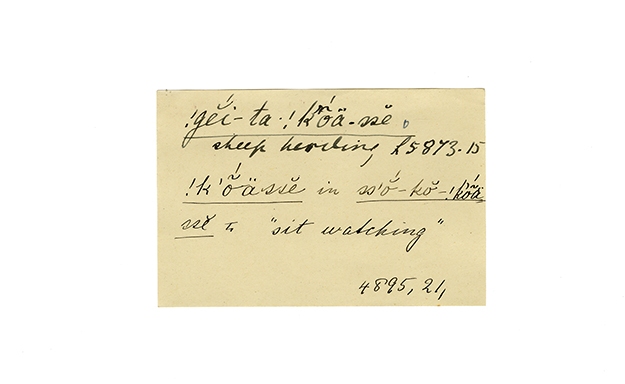 !gĕ́i-ta-!k'õ̆ä-ssĕ.
sheep herding, L5873-15
!k'õ̆ässĕ in ss'ŏ́-kŏ-!k'õ̆ä
ssĕ is "sit watching"
4895, 21,